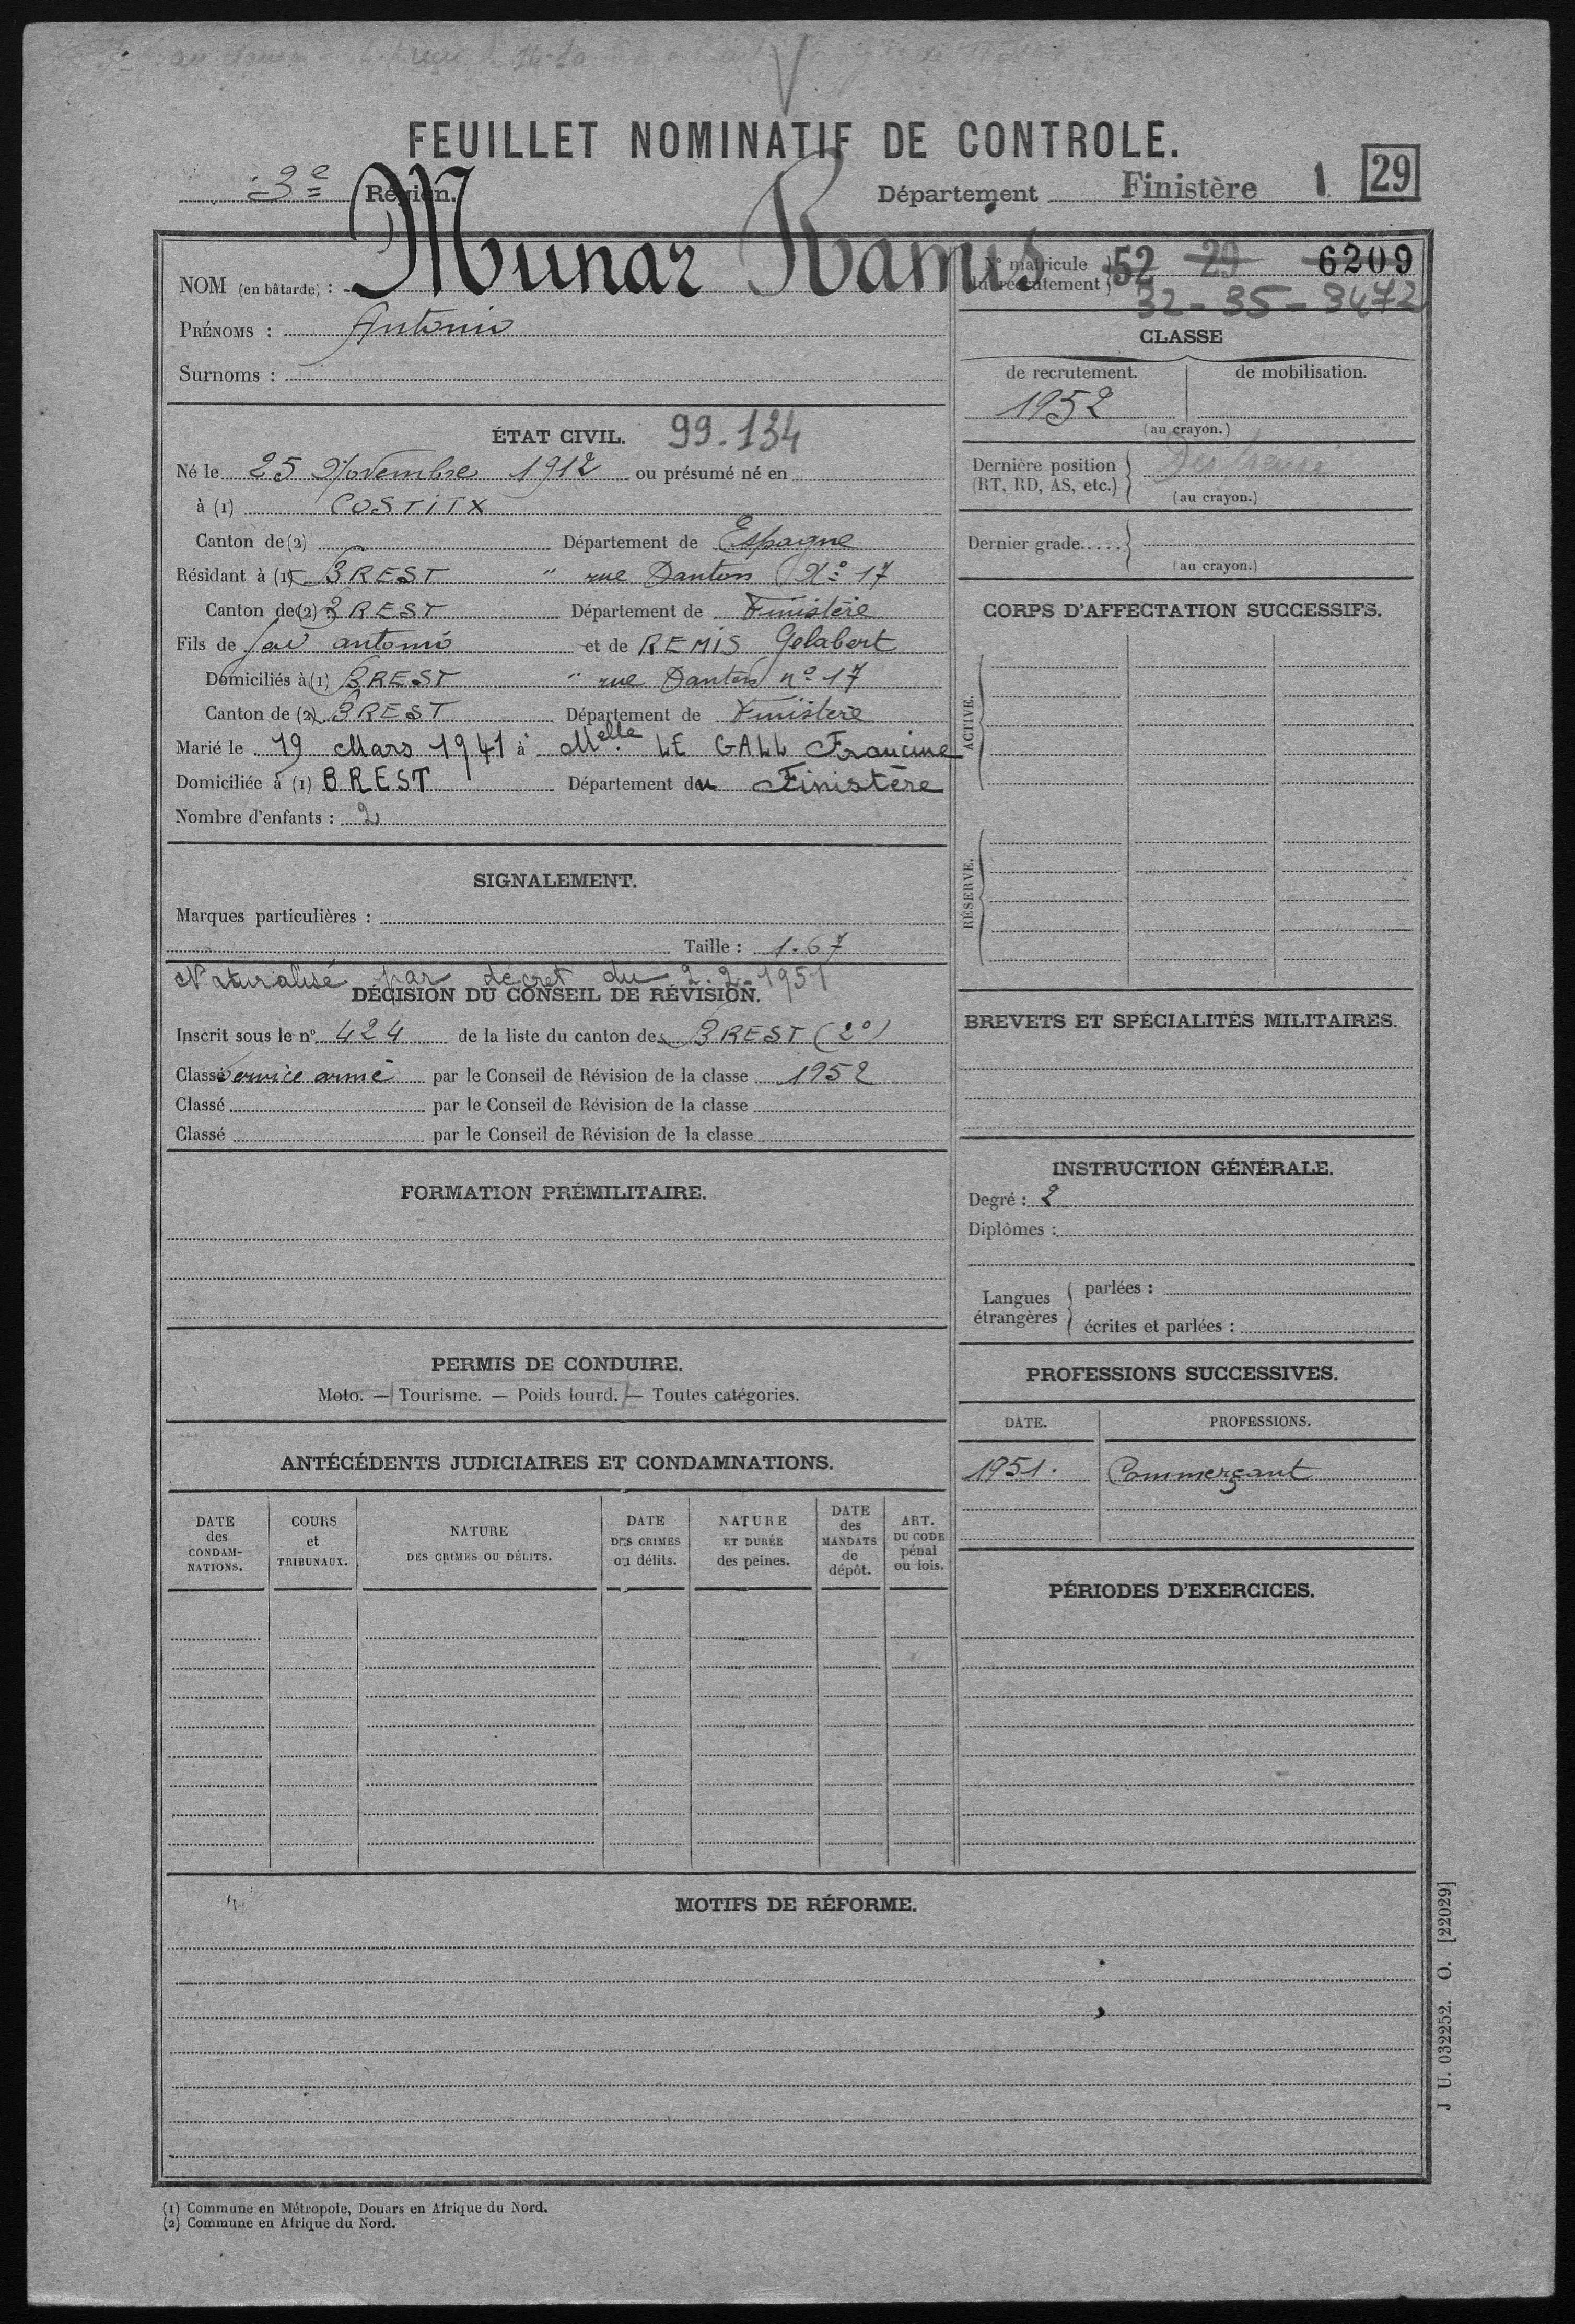 FEUILLET NOMINATIF DE CONTROLE.
3e Région. Département Finistère 1 29
NOM (en bâtarde) : Munar Ramis
N° matricule du recrutement 52 29 6209
32-35-3472
PRÉNOMS : Antonio
Surnoms :
CLASSE
de recrutement. de mobilisation.
1952
(au crayon.)
ÉTAT CIVIL. 99.134
Né le 25 Novembre 1912 ou présumé né en
à (1) COSTITX
Canton de (2) Département de Espagne
Résidant à (1) BREST " rue Danton N° 17
Canton de (2) BREST Département de Finistère
Fils de antonio et de REMIS Gelabert
Domiciliés à (1) BREST " rue Danton n° 17
Canton de (2) BREST Département de Finistère
Marié le 19 Mars 1941 à Melle. LE GALL Francine
Domiciliée à (1) BREST Département du Finistère
Nombre d'enfants : 2
Dernière position (RT, RD, AS, etc.)
(au crayon.)
Dernier grade.....
(au crayon.)
CORPS D'AFFECTATION SUCCESSIFS.
ACTIVE.
RÉSERVE.
SIGNALEMENT.
Marques particulières :
Taille : 1.67
Naturalisé par décret du 2.2.1951
DÉCISION DU CONSEIL DE RÉVISION.
Inscrit sous le n° 424 de la liste du canton de BREST (2°)
Classé Service armé par le Conseil de Révision de la classe 1952
Classé par le Conseil de Révision de la classe
Classé par le Conseil de Révision de la classe
BREVETS ET SPÉCIALITÉS MILITAIRES.
FORMATION PRÉMILITAIRE.
INSTRUCTION GÉNÉRALE.
Degré : 2
Diplômes :
Langues étrangères
parlées :
écrites et parlées :
PERMIS DE CONDUIRE.
Moto. — Tourisme. — Poids lourd. — Toutes catégories.
PROFESSIONS SUCCESSIVES.
DATE. PROFESSIONS.
1951. Commerçant
ANTÉCÉDENTS JUDICIAIRES ET CONDAMNATIONS.
DATE des CONDAMNATIONS.
COURS et TRIBUNAUX.
NATURE DES CRIMES OU DÉLITS.
DATE DES CRIMES ou délits.
NATURE ET DURÉE des peines.
DATE des MANDATS de dépôt.
ART. DU CODE pénal ou lois.
PÉRIODES D'EXERCICES.
MOTIFS DE RÉFORME.
J U. 032252. O. [22029]
(1) Commune en Métropole, Douars en Afrique du Nord.
(2) Commune en Afrique du Nord.